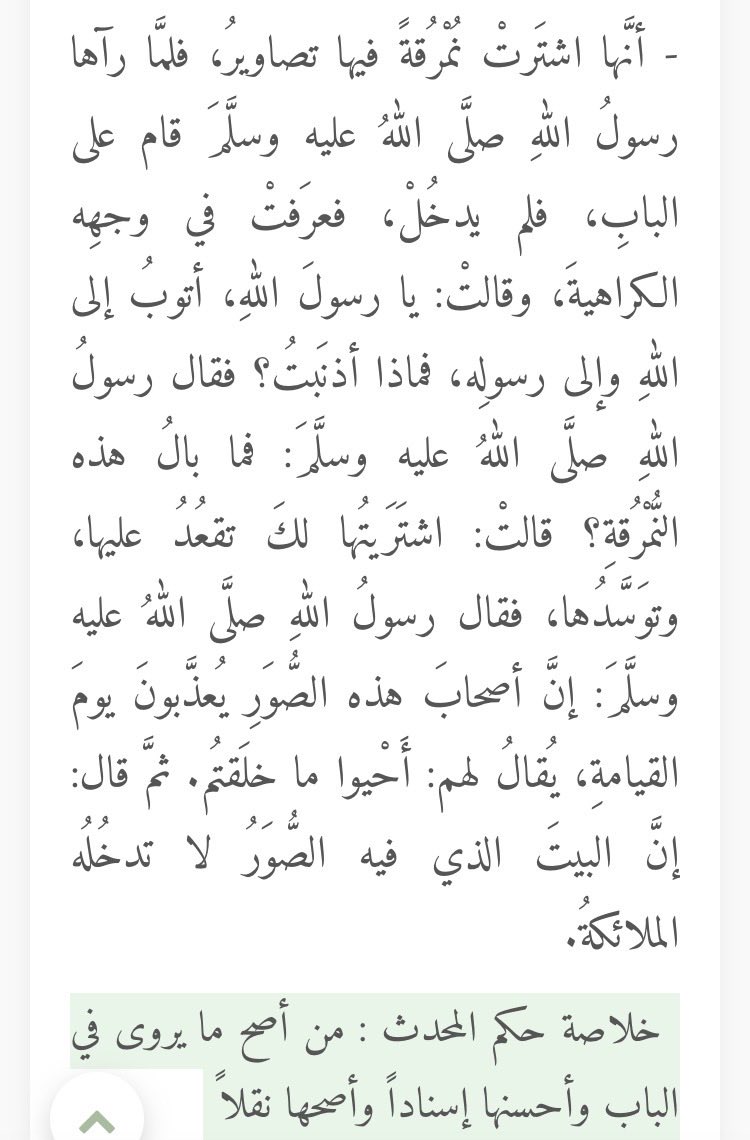 - أنَّها اشتَرتْ نُمْرُقةً فيها تصاويرُ، فلمَّا رآها
رسولُ اللهِ صلَّى اللهُ عليه وسلَّمَ قام على
البابِ، فلم يدخُلْ، فعرَفتْ في وجهِه
الكراهيةَ، وقالتْ: يا رسولَ اللهِ، أتوبُ إلى
اللهِ وإلى رسولِه، فماذا أذنَبتُ؟ فقال رسولُ
اللهِ صلَّى اللهُ عليه وسلَّمَ: فما بالُ هذه
النُّمْرُقةِ؟ قالتْ: اشتَرَيتُها لكَ تقعُدُ عليها،
وتوَسَّدُها، فقال رسولُ اللهِ صلَّى اللهُ عليه
وسلَّمَ: إنَّ أصحابَ هذه الصُّوَرِ يُعذَّبونَ يومَ
القيامةِ، يُقالُ لهم: أَحْيوا ما خلَقتُم. ثمَّ قال:
إنَّ البيتَ الذي فيه الصُّوَرُ لا تدخُلُه
الملائكةُ.
خلاصة حكم المحدث : من أصح ما يروى في
الباب وأحسنها إسناداً وأصحها نقلاً